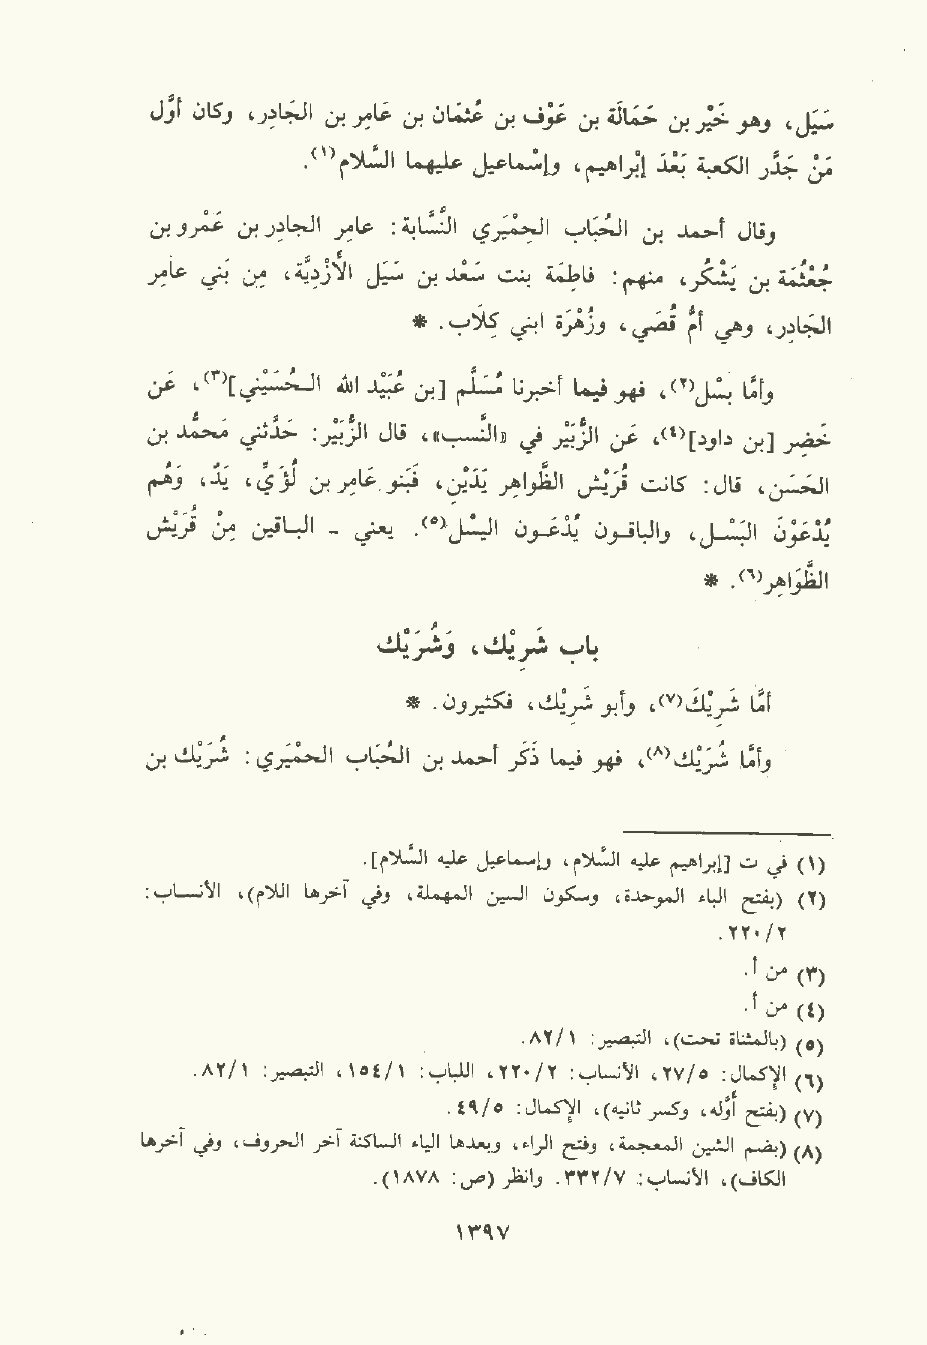 سَيَل، وهو خَيْر بن حَمَالَة بن عَوْف بن عُثمَان بن عَامِر بن الجَادِر، وكان أوَّل
مَنْ جَدَّر الكعبة بَعْدَ إبْراهيم، وإسْماعيل عليهما السَّلام(١).
وقال أحمد بن الحُبَاب الحِمْيَري النَّسَّابة: عامِر الجادِر بن عَمْرو بن
جُعْثُمَة بن يَشْكُر، منهم: فاطِمَة بنت سَعْد بن سَيَل الأَزْدِيَّة، مِن بَني عامِر
الجَادِر، وهي أمُّ قُصَي، وزُهْرَة ابني كِلَاب. *
وأمَّا بسْل(٢)، فهو فيما أخبرنا مُسَلَّم [بن عُبَيْد الله الحُسَيْني](٣)، عَن
خَضِر [بن داود](٤)، عَن الزُّبَيْر في «النَّسب»، قال الزُّبَيْر: حَدَّثني محمَّد بن
الحَسَن، قال: كانت قُرَيْش الظَّواهِر يَدَيْن، فَبَنو عامِر بن لُؤَيِّ، يَدٌ، وَهُم
يُدْعَوْنَ البَسْل، والباقون يُدْعَون اليسْل(٥). يعني - الباقين مِنْ قُرَيْش
الظَّوَاهِر(٦). *
باب شَرِيْك، وَشُرَيْك
أمَّا شَرِيْكَ(٧)، وأبو شَرِيْك، فكثيرون. *
وأمَّا شُرَيْك(٨)، فهو فيما ذَكَرَ أحمد بن الحُبَاب الحمْيَري: شُرَيْك بن
(١) في ت [إبراهيم عليه السَّلام، وإسماعيل عليه السَّلام].
(٢) (بفتح الباء الموحدة، وسكون السين المهملة، وفي آخرها اللام)، الأنساب:
٢/٢٢٠.
(٣) من أ.
(٤) من أ.
(٥) (بالمثناة تحت)، التبصير: ١/٨٢.
(٦) الإكمال: ٥/٢٧، الأنساب: ٢/٢٢٠، اللباب: ١/١٥٤، التبصير: ١/٨٢.
(٧) (بفتح أوَّله، وكسر ثانيه)، الإكمال: ٥/٤٩.
(٨) (بضم الشين المعجمة، وفتح الراء، وبعدها الياء الساكنة آخر الحروف، وفي آخرها
الكاف)، الأنساب: ٧/٣٣٢. وانظر (ص: ١٨٧٨).
١٣٩٧